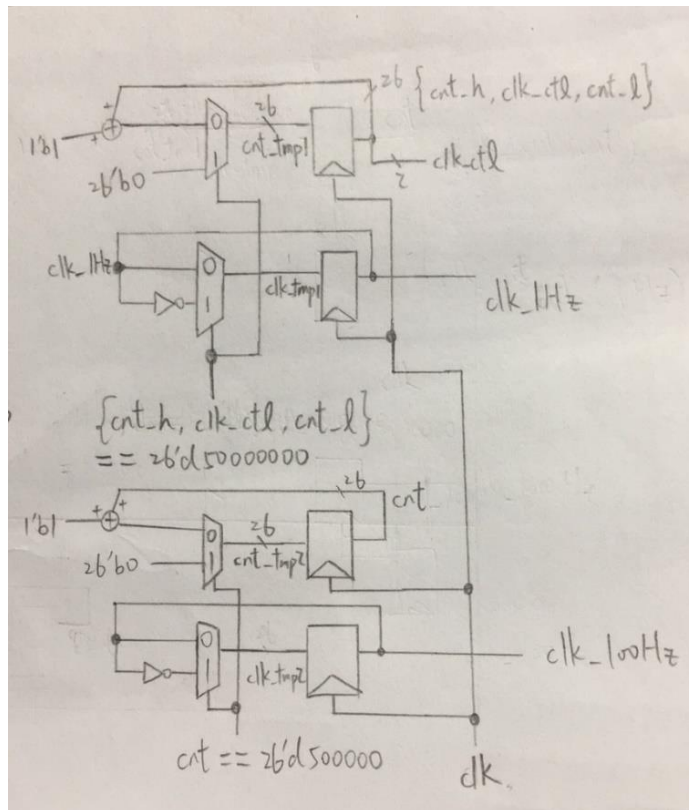 26 {cnt_h, clk_ctl, cnt_l}
1'b1
+
+
0
26
cnt_tmp1
2
clk_ctl
26'b0
1
clk_1Hz
0
1
clk_tmp1
clk_1Hz
1
{cnt_h, clk_ctl, cnt_l}
== 26'd50000000
26
cnt
1'b1
+
+
0
26
cnt_tmp2
26'b0
1
0
clk_tmp2
1
clk_100Hz
cnt == 26'd500000
clk